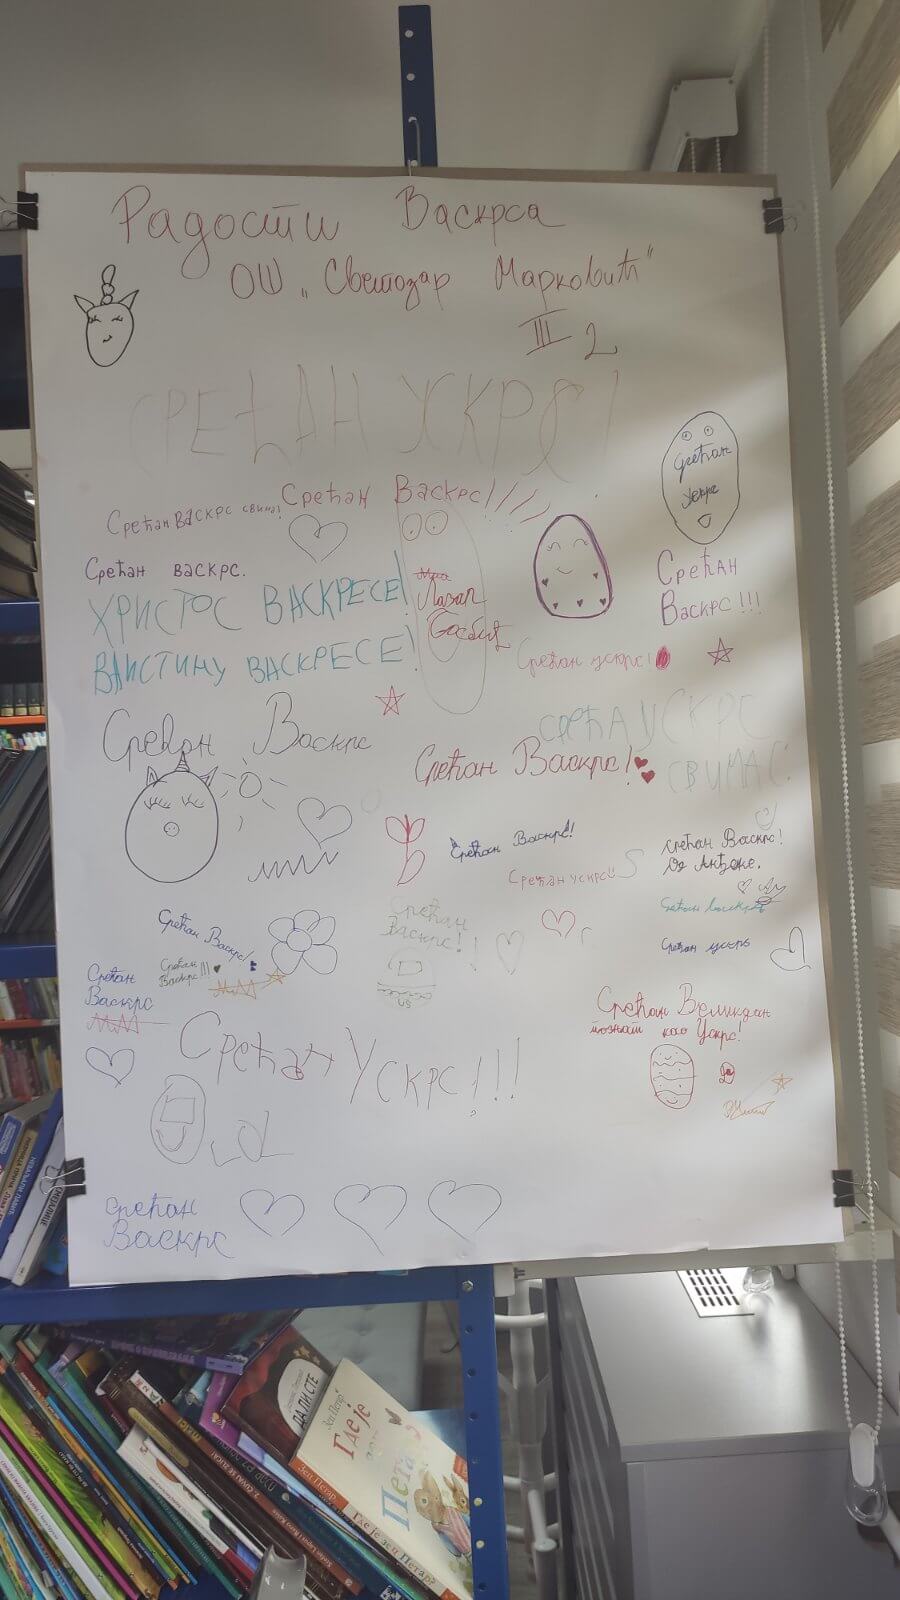 Радости Васкрса
ОШ „Светозар Марковић“
III 2
СРЕЋАН УСКРС!
Срећан Васкрс свима!
Срећан Васкрс!////
Срећан
Ускрс
Срећан васкрс.
ХРИСТОС ВАСКРЕСЕ!
ВАИСТИНУ ВАСКРЕСЕ!
Лазар
Срећан
Васкрс!!!
Срећан ускрс!
Срећан Васкрс
СРЕЋА УСКРС
СВИМА
Срећан Васкрс!
Срећан Васкрс!
Срећан ускрс
Срећан Васкрс!
Од Анђеле.
Срећан Васкрс
Срећан ускрс
Срећан Васкрс!
Срећан
Васкрс!!!
Срећан
Васкрс
Срећан
Васкрс!
Срећан Великдан
познат као Ускрс!
Срећан Ускрс!!!
Срећан
Васкрс
ДА ЛИ СТЕ
Зец Петар
Где је
Петар?
Где је зец Петар?